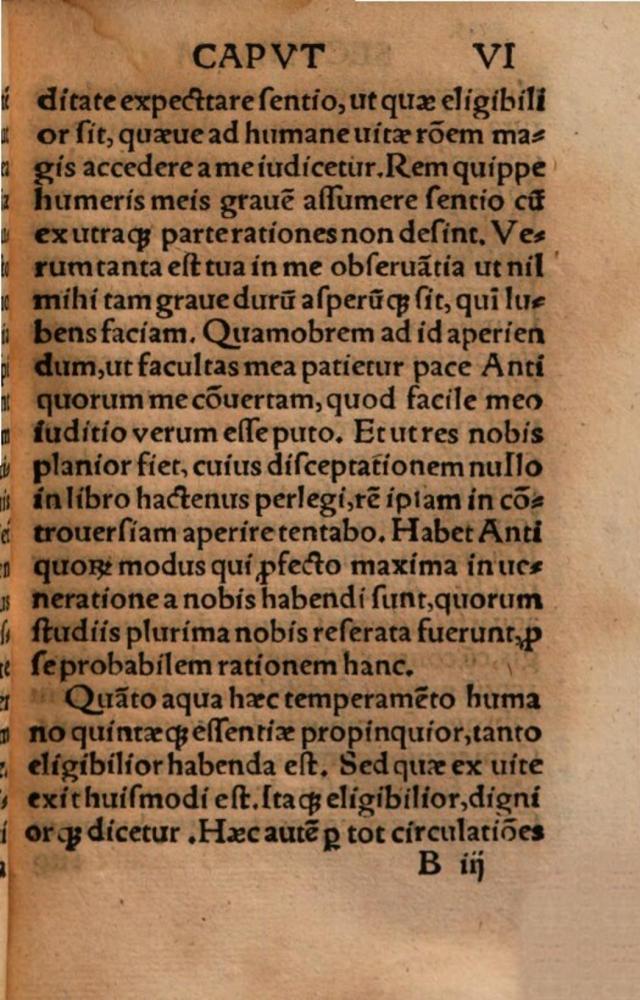 CAPVT VI
ditate expecttare ſentio, ut quæ eligibili
or ſit, quæue ad humane uitæ rōem ma⸗
gis accedere a me iudicetur. Rem quippe
humeris meis grauē aſſumere ſentio cū
ex utraqꝫ parte rationes non deſint. Ve⸗
rum tanta eſt tua in me obſeruātia ut nil
mihi tam graue durū aſperūqꝫ ſit, quī lu⸗
bens faciam. Quamobrem ad id aperien
dum, ut facultas mea patietur pace Anti
quorum me cōuertam, quod facile meo
iuditio verum eſſe puto. Et ut res nobis
planior fiet, cuius diſceptationem nullo
in libro hactenus perlegi, rē ipſam in cō⸗
trouerſiam aperire tentabo. Habet Anti
quoꝝ modus qui ꝓfecto maxima in ue⸗
neratione a nobis habendi ſunt, quorum
ſtudiis plurima nobis reſerata fuerunt, ꝓ
ſe probabilem rationem hanc.
Quāto aqua hæc temperamēto huma
no quintæqꝫ eſſentiæ propinquior, tanto
eligibilior habenda eſt. Sed quæ ex uite
exit huiſmodi eſt. Itaqꝫ eligibilior, digni
orqꝫ dicetur. Hæc autē ꝑ tot circulatiōes
B iij